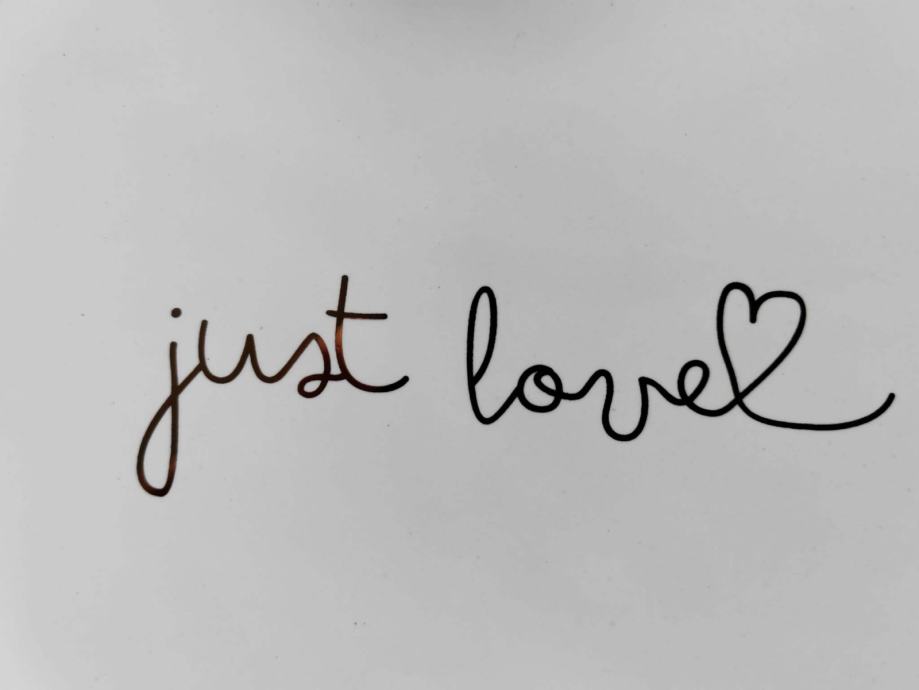 just love